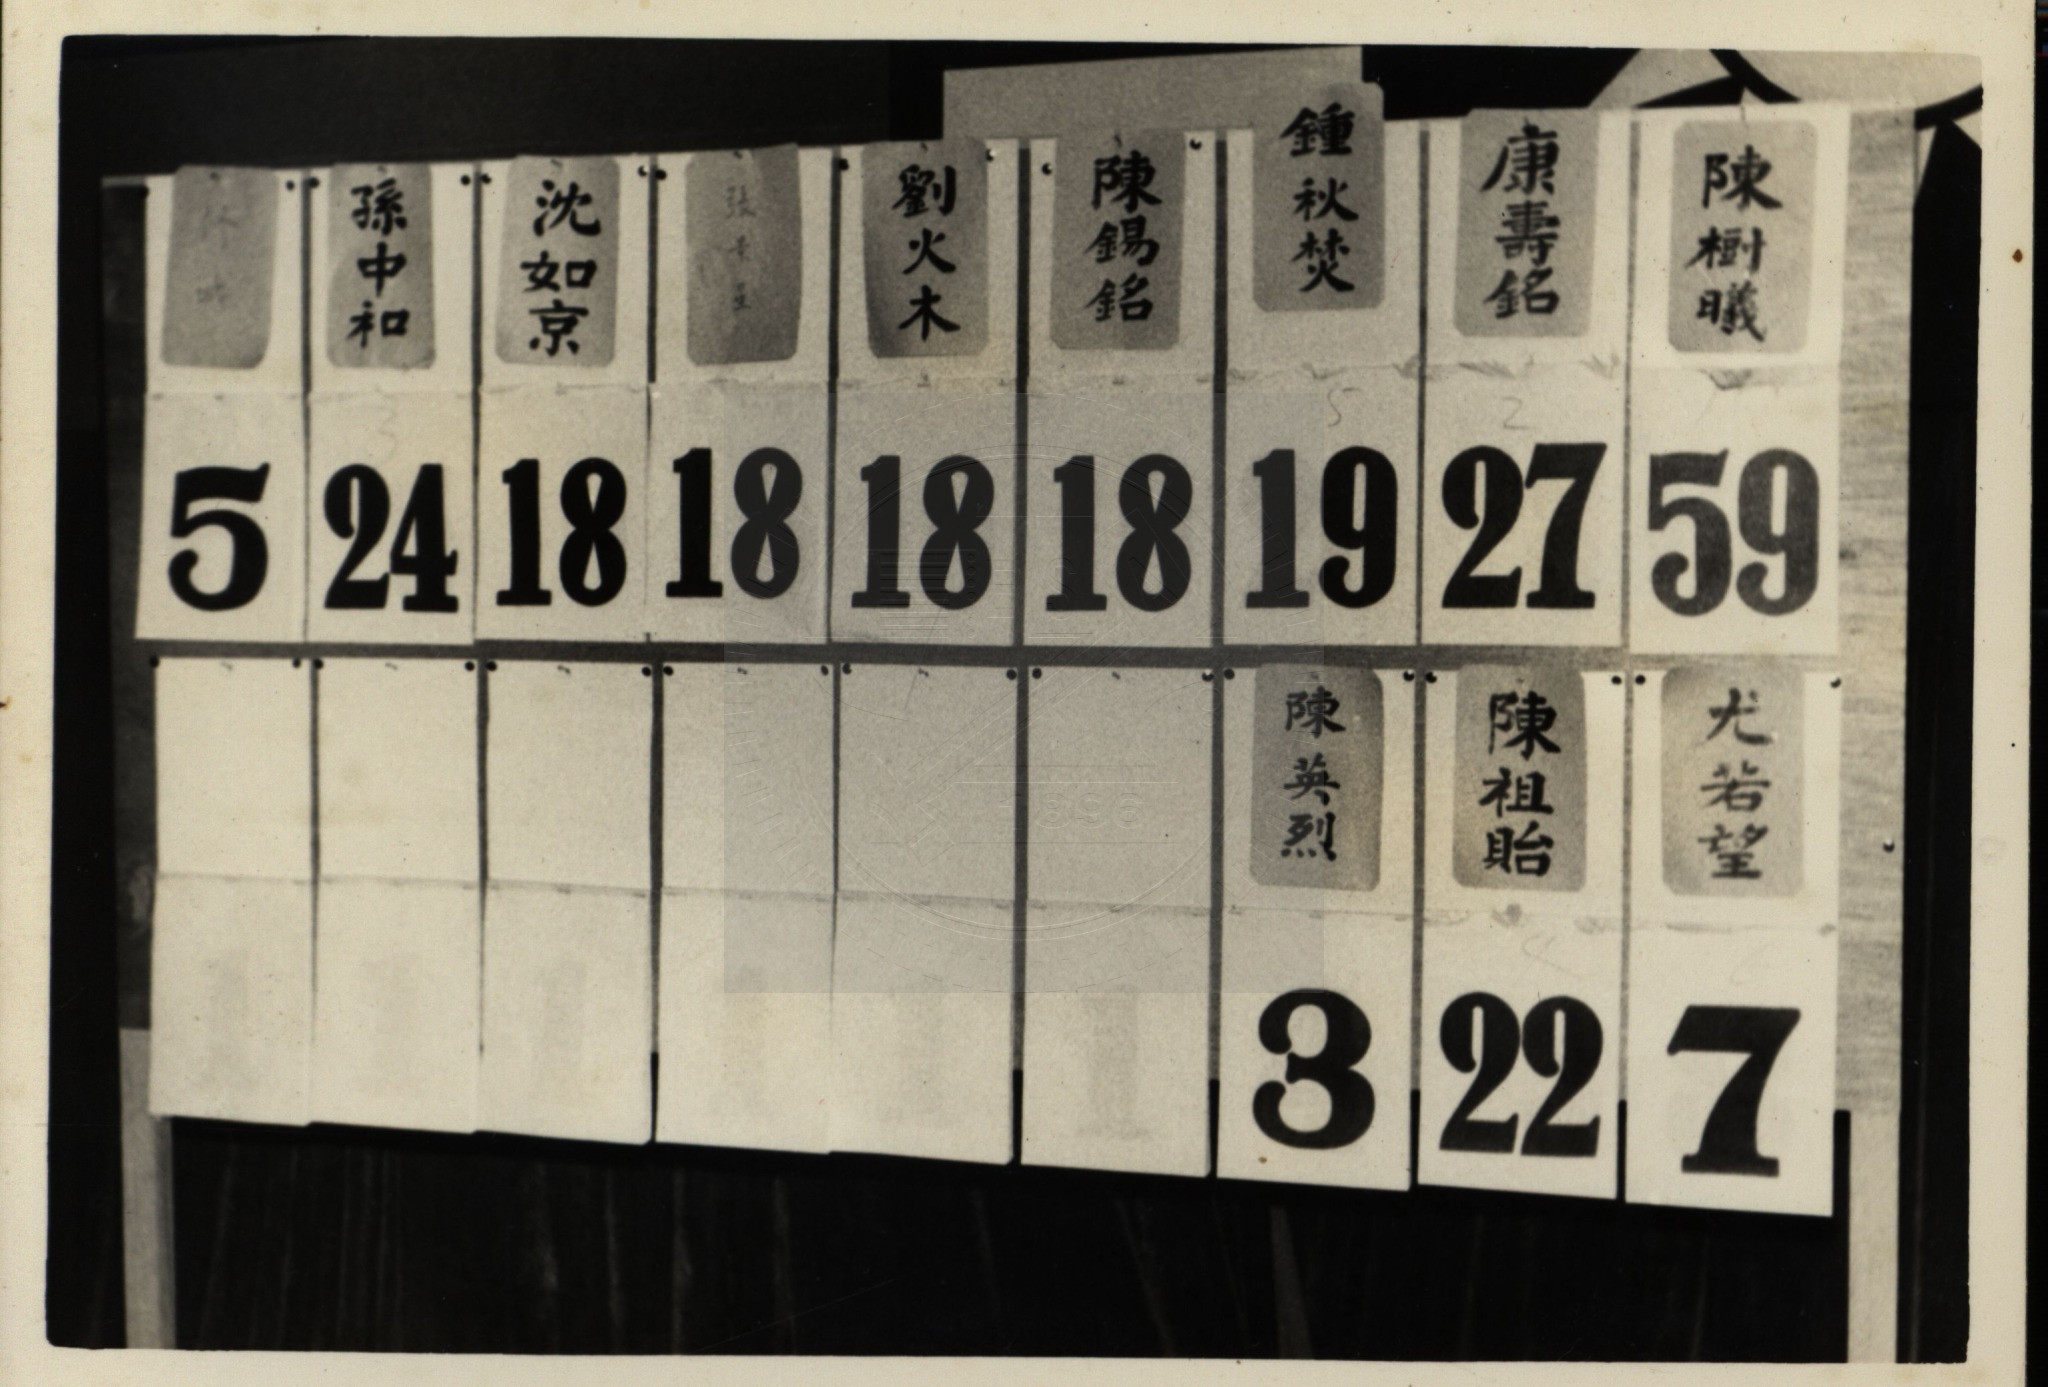 陳樹曦
59
康壽銘
27
鍾秋焚
19
陳錫銘
18
劉火木
18
18
沈如京
18
孫中和
24
5
尤若望
7
陳祖貽
22
陳英烈
3
1896